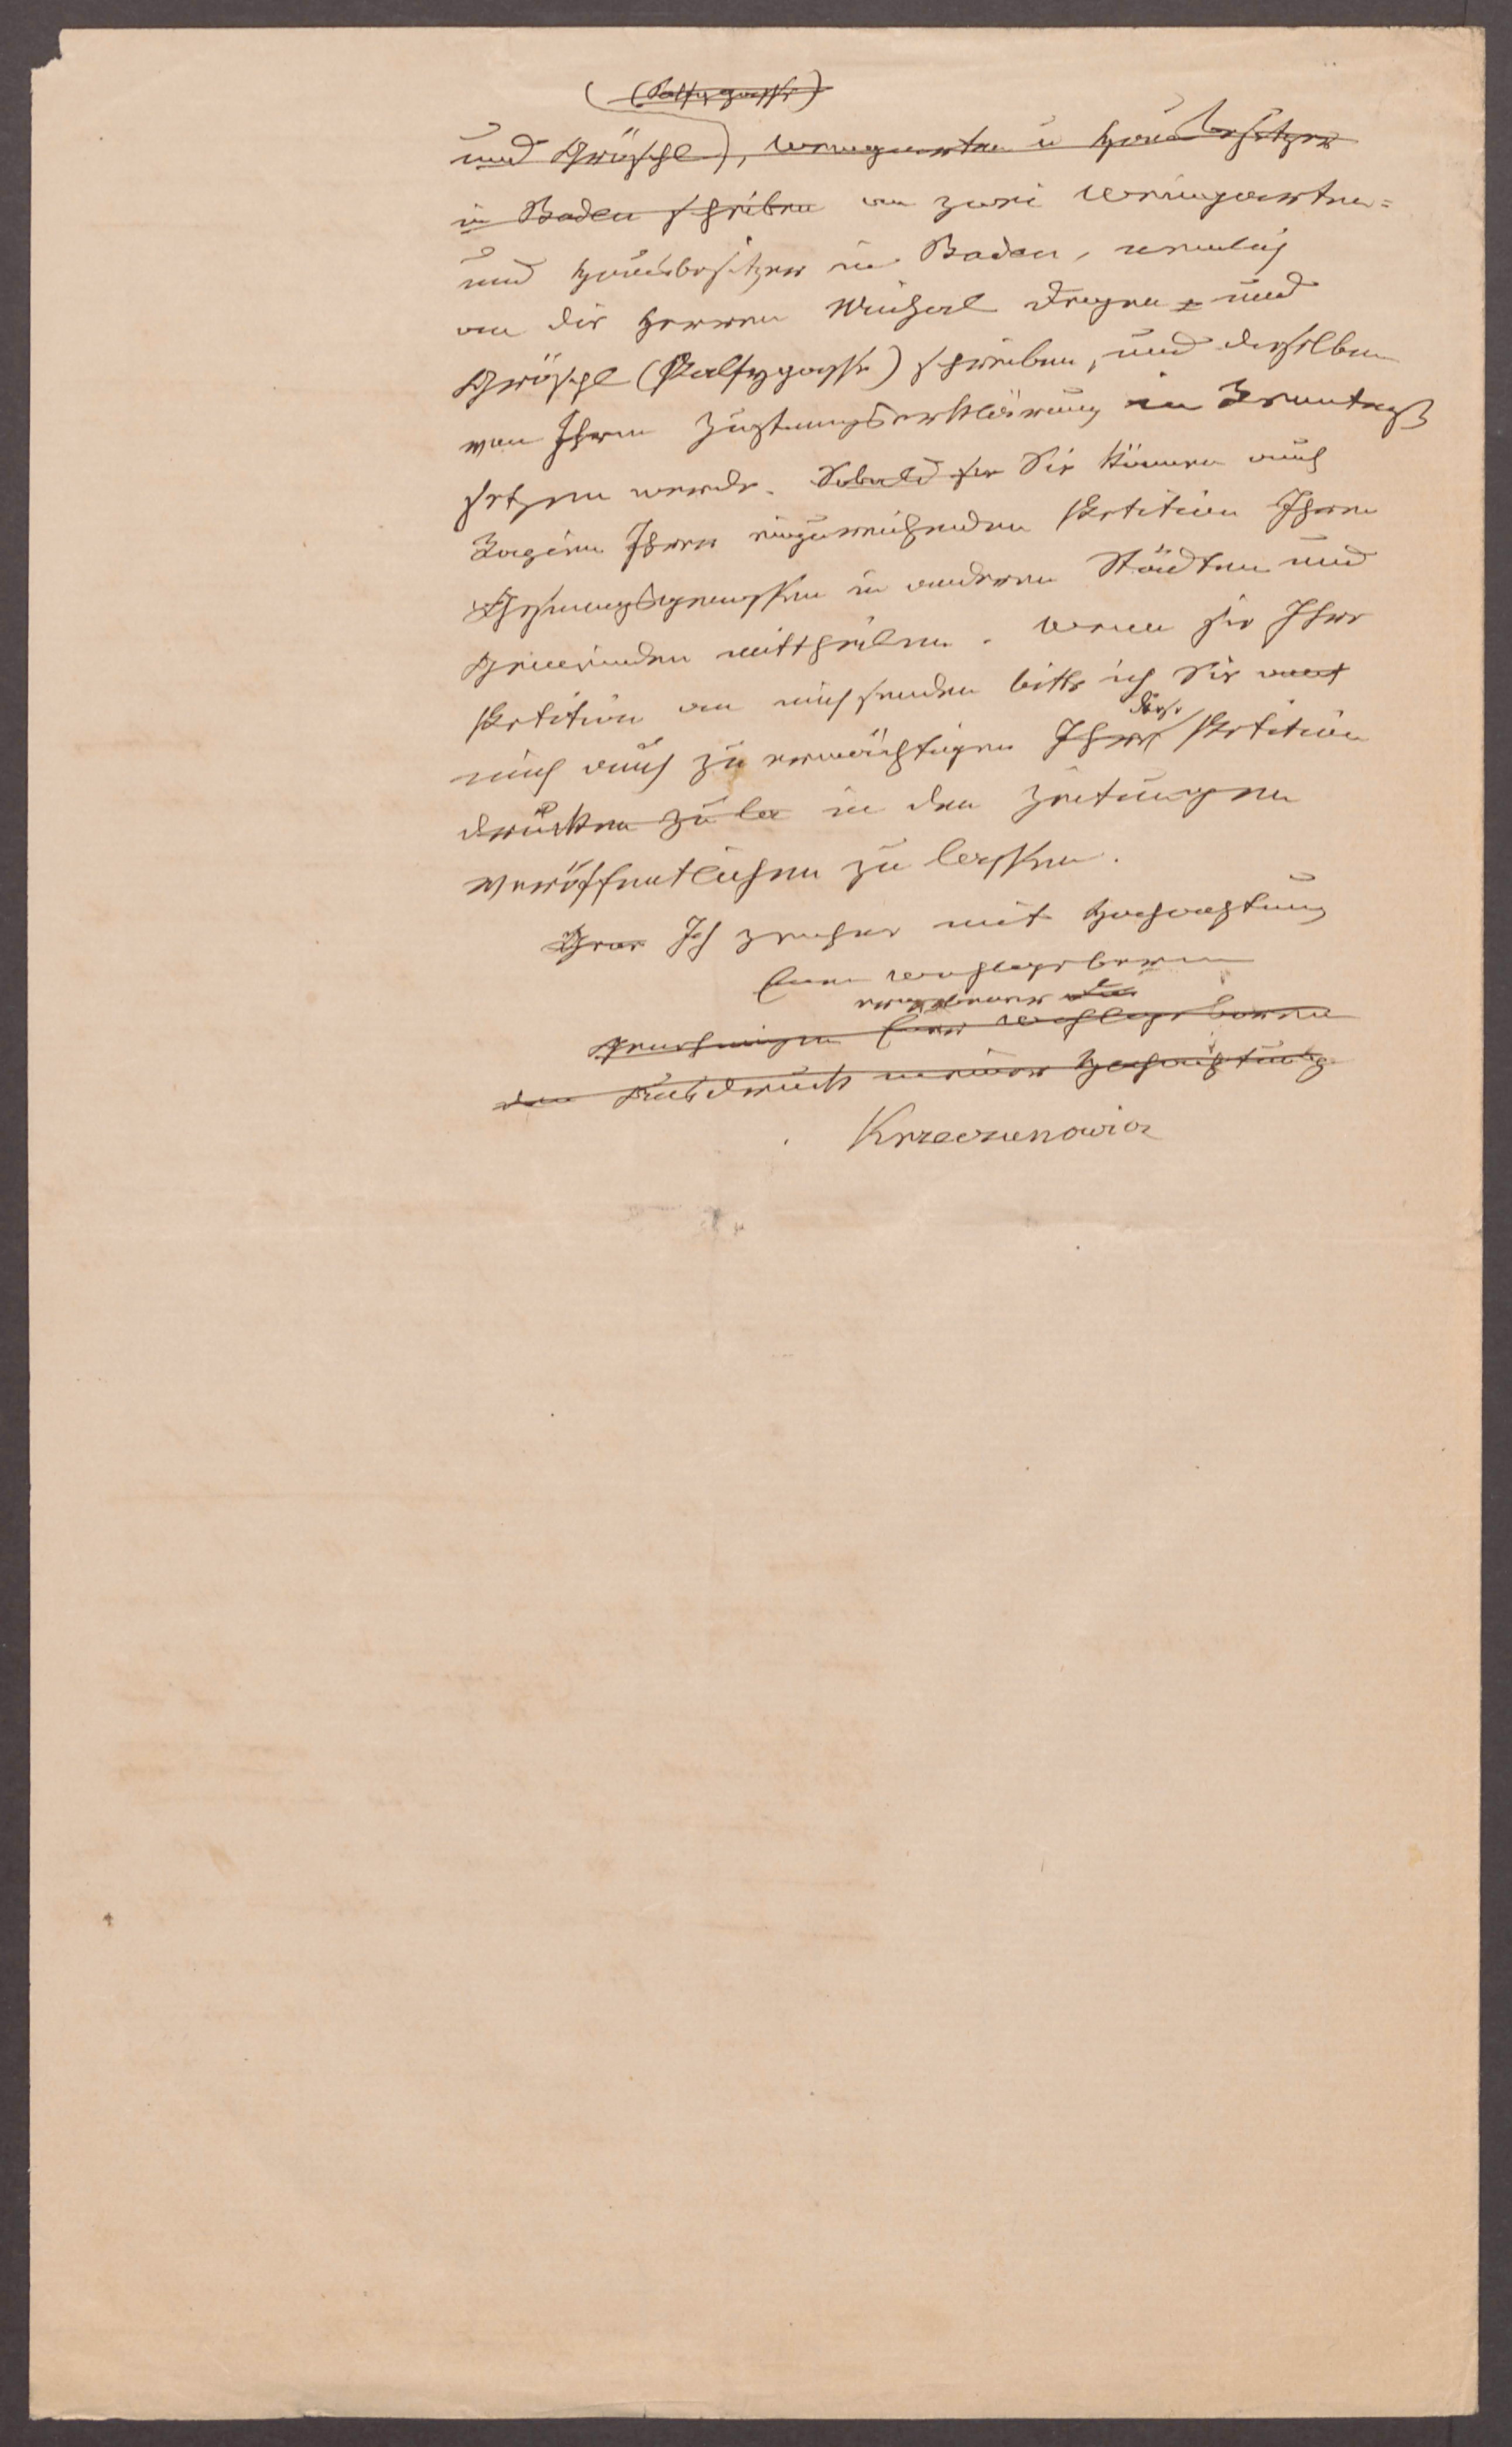 (Palfygasse)
und Gröschl), Weingarten u Hausbesitzer
in Baden schriben an zwei Weingarten=
und Hausbesitzer in Baden, nemlich
an die Herren Michael und
Gröschl (Palfygasse) schreiben, und dieselben
von Ihrer Zustimungserklärung in Kenntniß
setzen werde. Sobald sie Sie können auch
Ihrer einzureichenden Petition Ihren
Gesinungsgenossen in anderen Städten und
Gemeinden mittheilen. Wenn sie Ihre
Petition an mich senden bitte ich Sie
diese
mich auch zu ermächtigen Ihre Petition
drücken zu la in den Zeitungen
veröffentlichen zu lassen.
Ich zeichne mit Hochachtung
Euer Wohlgeboren
ergebener
genehmigen Euer Wohlgeboren
den Ausdruck meiner Hochachtung
Krzeczunowicz